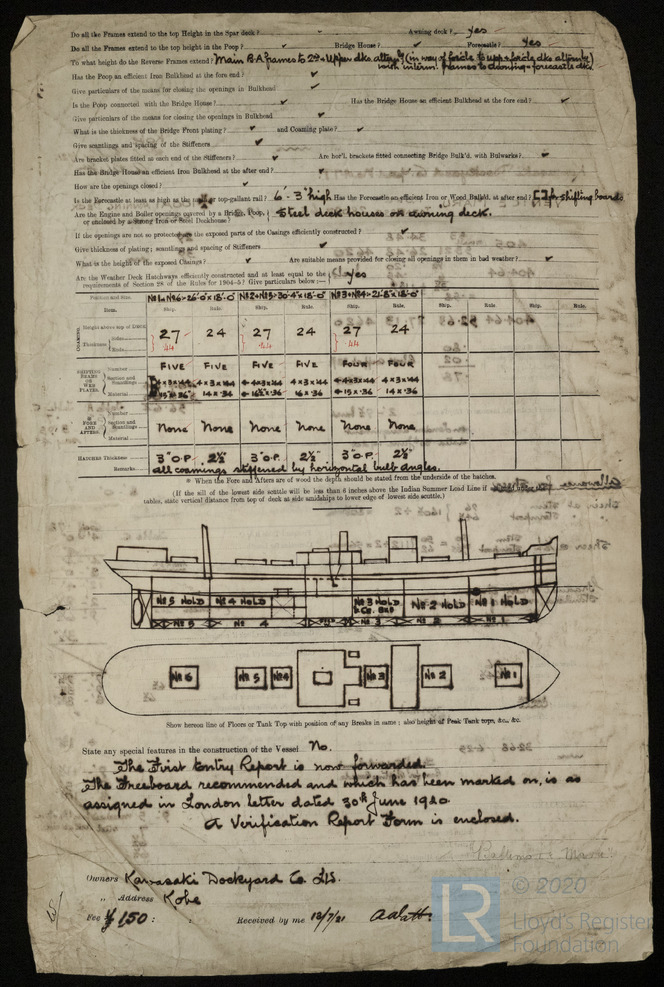 Do all the Frames extend to the top Height in the Spar deck? Awning deck? yes
Do all the Frames extend to top height in the Poop? ✓ Bridge House? ✓ Forecastle? yes
To what height do the Reverse Frames extend? Main B.A frames to 2nd & Upper dks. altern.ly (in way of fore'cle to upp & fore'cle dks alternly)
with interm. frames to awning & forecastle dks.
Has the Poop an efficient Iron Bulkhead at the fore end? ✓
Give particulars of the means for closing the openings in Bulkhead ✓
Is the Poop connected with the Bridge House? ✓ Has the Bridge House an efficient Bulkhead at the fore end? ✓
Give particulars of the means for closing the openings in Bulkhead ✓
What is the thickness of the Bridge Front plating? ✓ and Coaming plate? ✓
Give scantlings and spacing of the Stiffeners ✓
Are bracket plates fitted at each end of the Stiffeners? ✓ Are hor'l. brackets fitted connecting Bridge Bulk'd. with Bulwarks? ✓
Has the Bridge House an efficient Iron Bulkhead at the after end? ✓
How are the openings closed? ✓
Is the Forecastle at least as high as the main or top-gallant rail? 6'-3" high Has the Forecastle an efficient Iron or Wood Bulk'd. at after end? [ ] for shifting boards
Are the Engine and Boiler openings covered by a Bridge, Poop, Steel deck houses on awning deck.
or enclosed by a strong Iron or Steel Deckhouse?
If the openings are not so protected are the exposed parts of the Casings efficiently constructed? ✓
Give thickness of plating; scantlings and spacing of Stiffeners ✓
What is the height of the exposed Casings? ✓ Are suitable means provided for closing all openings in them in bad weather? ✓
Are the Weather Deck Hatchways efficiently constructed and at least equal to the yes
requirements of Section 28 of the Rules for 1904-5? Give particulars below :—
Position and Size. No 1 & No 6 = 26'-0" x 18'-0" No 2 & No 5 = 30'-4" x 18'-0" No 3 & No 4 = 21'-8" x 18'-0"
Item. Ship. Rule. Ship. Rule. Ship. Rule. Ship. Rule. Ship. Rule.
COAMING. Height above top of DECK 27 24 27 24 27 24
Thickness Sides Ends .44 .44 .44
SHIFTING BEAMS OR WEB PLATES. Number FIVE FIVE FIVE FIVE FOUR FOUR
Section and Scantlings 4 x 3 x .44 4 x 3 x .44 4 x 3 x .44 4 x 3 x .44 4 x 3 x .44 4 x 3 x .44
Material 15 x .36 14 x .36 16½ x .36 16 x .36 15 x .36 14 x .36
FORE AND AFTERS. Number
Section and Scantlings None None None None None None
Material
HATCHES Thickness 3" O.P. 2½" 3" O.P. 2½" 3" O.P. 2½"
Remarks All coamings stiffened by horizontal bulb angles.
* When the Fore and Afters are of wood the depth should be stated from the underside of the hatches.
(If the sill of the lowest side scuttle will be less than 6 inches above the Indian Summer Load Line if
tables, state vertical distance from top of deck at side amidships to lower edge of lowest side scuttle.)
No 5 HOLD No 4 HOLD No 3 HOLD No 2 HOLD No 1 HOLD
No 5 4 No 3 2 No 1
No 6 No 5 No 4 No 3 No 2 No 1
Show hereon line of Floors or Tank Top with position of any Breaks in same; also height of Peak Tank tops, &c., &c.
State any special features in the construction of the Vessel No.
The First Entry Report is now forwarded.
The Freeboard recommended and which has been marked on, is as
assigned in London letter dated 30th June 1920.
A Verification Report Form is enclosed.
Owners Kawasaki Dockyard Co. Ltd.
„ Address Kobe
Fee ¥ 150 : : Received by me 13/7/21
© 2020
LR
Lloyd's Register
Foundation